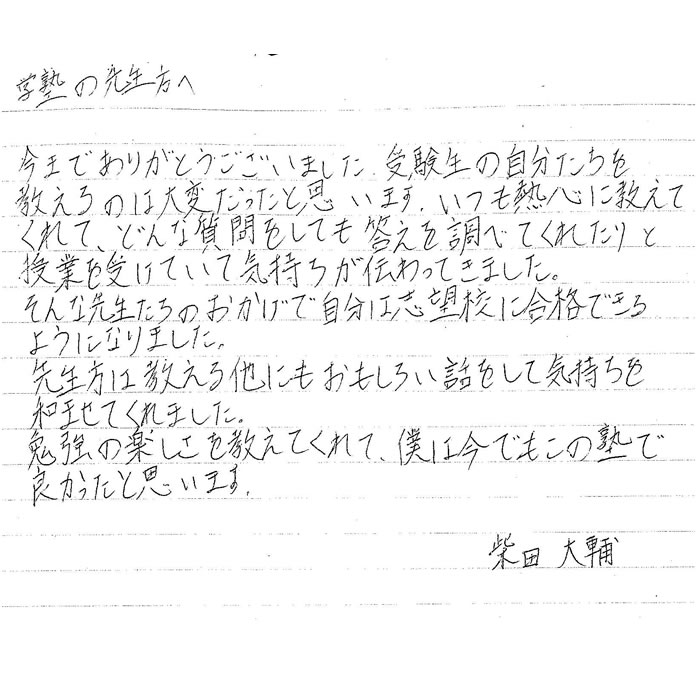 学塾の先生方へ
今までありがとうございました。受験生の自分たちを
教えるのは大変だったと思います。いつも熱心に教えて
くれて、どんな質問をしても答えを調べてくれたりと
授業を受けていて気持ちが伝わってきました。
そんな先生たちのおかげで自分は志望校に合格できる
ようになりました。
先生方は教える他にもおもしろい話をして気持ちを
和ませてくれました。
勉強の楽しさを教えてくれて、僕は今でもこの塾で
良かったと思います。
柴田 大輔